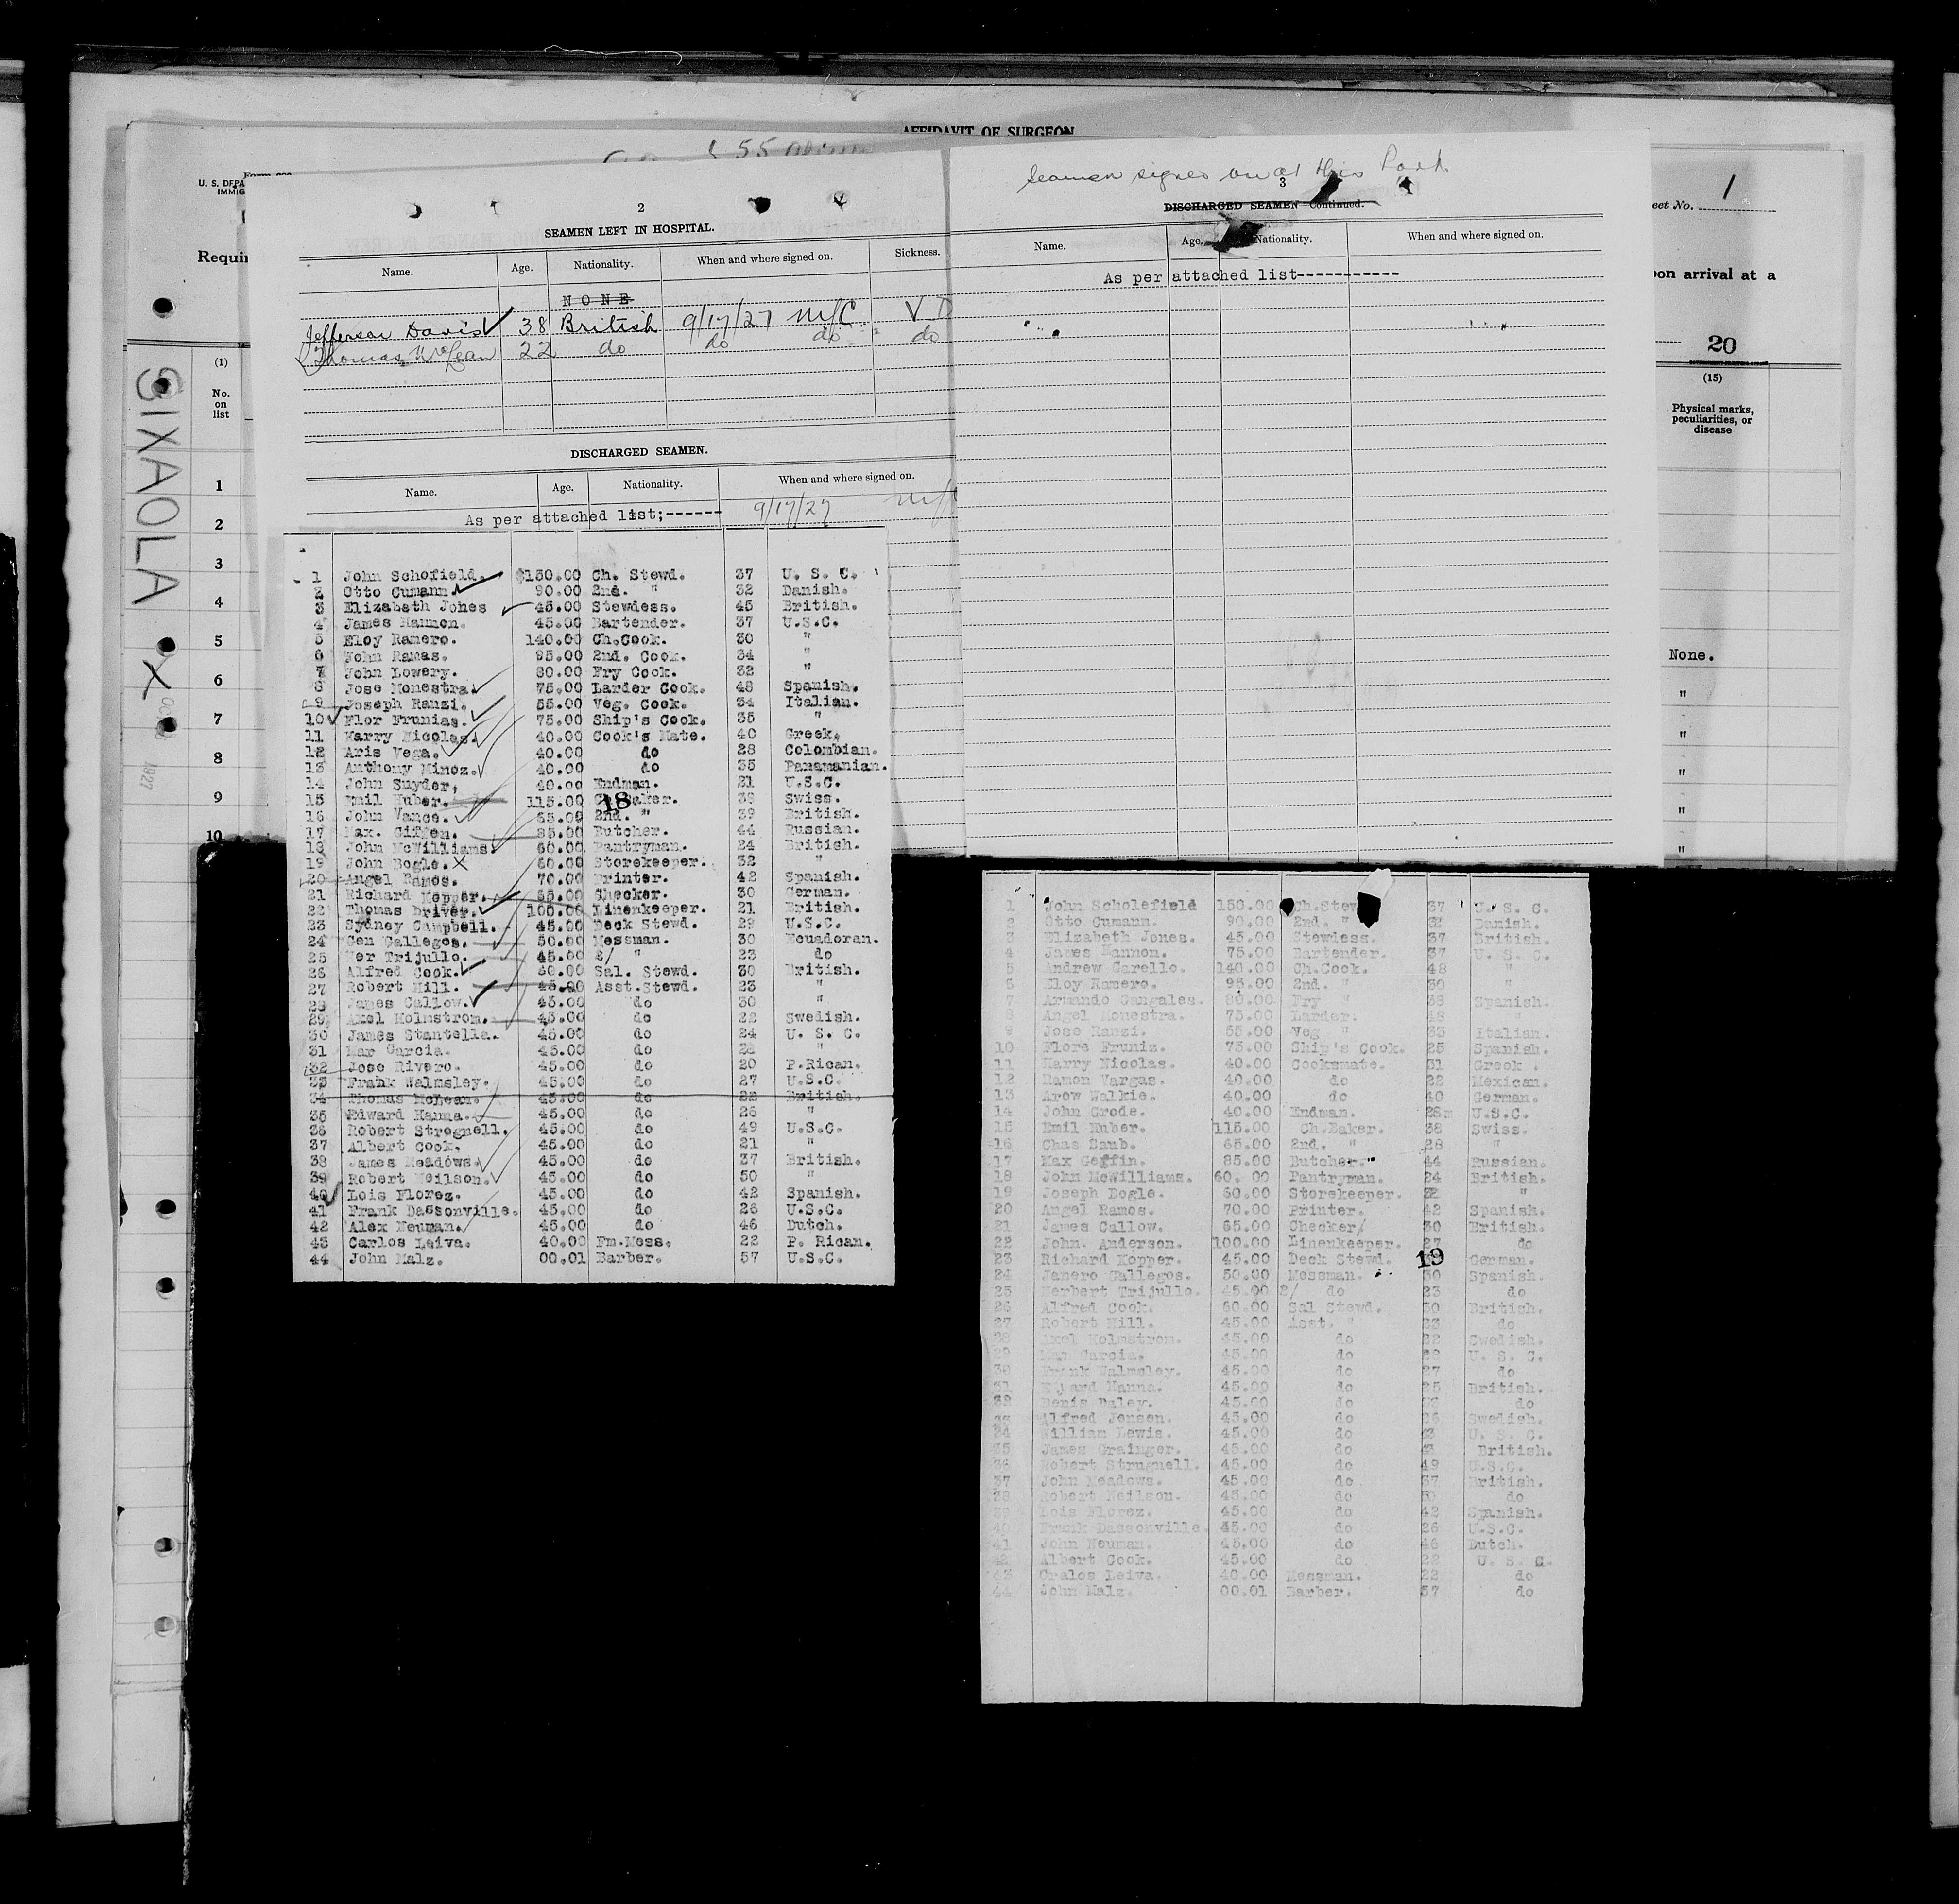 AFFIDAVIT OF SURGEON
U. S. DEPA
IMMIG
Requir
(1)
No.
on
list
1
2
3
4
5
6
7
8
9
10
SIXAOLA
X
1927
2
SEAMEN LEFT IN HOSPITAL.
Name. Age. Nationality. When and where signed on. Sickness.
NONE
Jefferson Davis 38 British 9/17/27 N/C V D
Thomas McLean 22 do do do do
DISCHARGED SEAMEN.
Name. Age. Nationality. When and where signed on.
As per attached list;------ 9/17/27
1 John Schofield. $150.00 Ch. Stewd. 37 U. S. C.
2 Otto Cumann. 90.00 2nd. " 32 Danish.
3 Elizabeth Jones 45.00 Stewdess. 45 British.
4 James Hannon. 45.00 Bartender. 37 U.S.C.
5 Eloy Ramero. 140.00 Ch.Cook. 30 "
6 John Ramas. 95.00 2nd. Cook. 34 "
7 John Lowery. 80.00 Fry Cook. 32 "
8 Jose Monestra. 75.00 Larder Cook. 48 Spanish.
9 Joseph Ranzi. 55.00 Veg. Cook. 34 Italian.
10 Flor Frunias. 75.00 Ship's Cook. 35 "
11 Harry Nicolas. 40.00 Cook's Mate. 40 Greek.
12 Aris Vega. 40.00 do 28 Colombian.
13 Anthony Minoz. 40.00 do 35 Panamanian.
14 John Snyder, 40.00 Endman. 21 U.S.C.
15 Emil Huber. 115.00 Ch.Baker. 38 Swiss.
18
16 John Vance. 65.00 2nd. " 39 British.
17 Max. Giffen. 85.00 Butcher. 44 Russian.
18 John McWilliams. 60.00 Pantryman. 24 British.
19 John Bogle. X 60.00 Storekeeper. 32 "
20 Angel Ramos. 70.00 Printer. 42 Spanish.
21 Richard Kopper. 65.00 Checker. 30 German.
22 Thomas Driver. 100.00 Linenkeeper. 21 British.
23 Sydney Campbell. 45.00 Deck Stewd. 29 U.S.C.
24 Gen Gallegos. 50.00 Messman. 30 Ecuadoran.
25 Her Trijullo. 45.00 2/ " 23 do
26 Alfred Cook. 60.00 Sal. Stewd. 30 British.
27 Robert Hill. 45.00 Asst.Stewd. 23 "
28 James Callow. 45.00 do 30 "
29 Axel Holmstrom. 45.00 do 22 Swedish.
30 James Stantella. 45.00 do 24 U. S. C.
31 Mar Garcia. 45.00 do 28 "
32 Jose Rivero. 45.00 do 20 P.Rican.
33 Frank Walmsley. 45.00 do 27 U.S.C.
34 Thomas McLean. 45.00 do 22 British.
35 Edward Hanna. 45.00 do 26 "
36 Robert Strognell. 45.00 do 49 U.S.C.
37 Albert Cook. 45.00 do 21 "
38 James Meadows. 45.00 do 37 British.
39 Robert Neilson. 45.00 do 50 "
40 Lois Florez. 45.00 do 42 Spanish.
41 Frank Dassonville. 45.00 do 26 U.S.C.
42 Alex Neuman. 45.00 do 46 Dutch.
43 Carlos Leiva. 40.00 Fm.Mess. 22 P. Rican.
44 John Malz. 00.01 Barber. 57 U.S.C.
Seamen signed on at this Port
3
DISCHARGED SEAMEN—Continued.
Name. Age. Nationality. When and where signed on.
As per attached list-----------
1 John Scholefield 150.00 Ch.Stew 37 U. S. C.
2 Otto Cumann. 90.00 2nd. " 32 Danish.
3 Elizabeth Jones. 45.00 Stewdess. 37 British.
4 James Hannon. 75.00 Bartender. 37 U. S. C.
5 Andrew Carello. 140.00 Ch.Cook. 48 "
6 Eloy Ramero. 95.00 2nd. " 30 "
7 Armando Gongales. 80.00 Fry " 38 Spanish.
Angel Monestra. 75.00 Larder. 48 "
9 Jose Ranzi. 55.00 Veg " 33 Italian.
10 Flore Fruniz. 75.00 Ship's Cook. 25 Spanish.
11 Harry Nicolas. 40.00 Cooksmate. 31 Greek .
12 Ramon Vargas. 40.00 do 22 Mexican.
13 Arow Walkie. 40.00 do 40 German.
14 John Grode. 40.00 Endman. 28m U.S.C.
15 Emil Huber. 115.00 Ch.Baker. 38 Swiss.
16 Chas Daub. 65.00 2nd. " 28 "
17 Max Geffin. 85.00 Butcher." 44 Russian.
18 John McWilliams. 60. 00 Pantryman. 24 British.
19 Joseph Bogle. 60.00 Storekeeper. 32 "
20 Angel Ramos. 70.00 Printer. 42 Spanish.
21 James Callow. 65.00 Checker/ 30 British.
22 John. Anderson. 100.00 Linenkeeper. 27 do
23 Richard Kopper. 45.00 Deck Stewd. German.
19
24 Janero Gallegos. 50.00 Messman. 30 Spanish.
25 Herbert Trijullo. 45.00 2/ do 23 do
26 Alfred Cook. 60.00 Sal Stewd. 30 British.
27 Robert Hill. 45.00 Asst. " 23 do
28 Axel Holmstrom. 45.00 do 22 Swedish.
29 Mar Garcia. 45.00 do 28 U. S. C.
30 Frank Walmsley. 45.00 do 27 do
31 Edward Hanna. 45.00 do 25 British.
32 Denis Daley. 45.00 do do
33 Alfred Jensen. 45.00 do 26 Swedish.
34 William Lewis. 45.00 do U. S. C.
35 James Grainger. 45.00 do British.
36 Robert Strugnell. 45.00 do 49 U.S.C.
37 John Meadows. 45.00 do 37 British.
38 Robert Neilson. 45.00 do do
39 Lois Florez. 45.00 do 42 Spanish.
40 Frank Dassonville. 45.00 do 26 U.S.C.
41 John Neuman. 45.00 do 46 Dutch.
42 Albert Cook. 45.00 do 22 U. S. C.
43 Cralos Leiva. 40.00 Messman. 22 do
44 John Malz. 00.01 Barber. 57 do
eet No. 1
pon arrival at a
20
(15)
Physical marks,
peculiarities, or
disease
None.
"
"
"
"
"